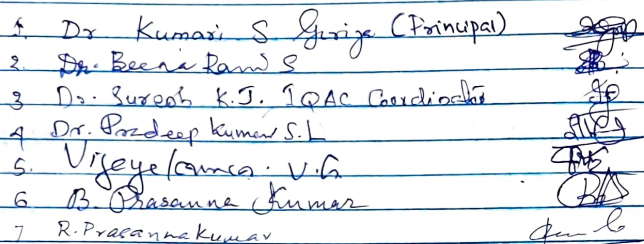 1. Dr Kumari S Girija (Principal)
2. Dr. Beena Rani S
3 Dr. Suresh K.J. IQAC Coordinator
4 Dr. Pradeep Kumar S.L
5. V.G
6 B. Prasanna Kumar
7 R. Prasannakumar